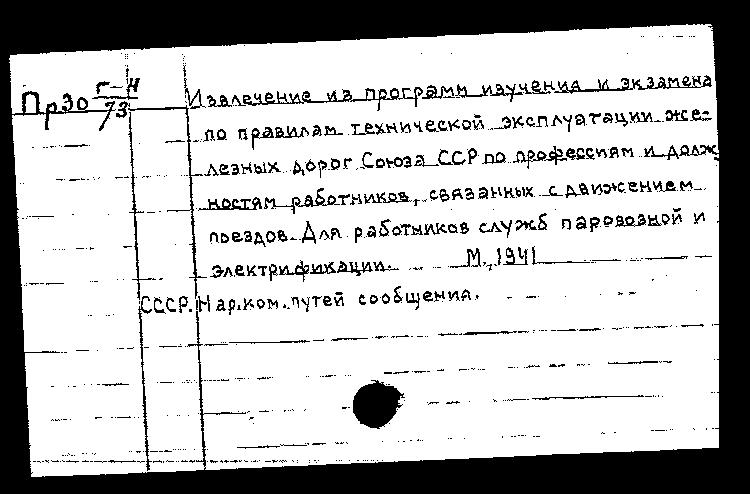 Пр30 г-4/73
Извлечение из программ изучения и экзамена
по правилам технической эксплуатации же-
лезных дорог Союза ССР по профессиям и долж
ностям работников, связанных с движением
поездов. Для работников служб паровозной и
электрификации. М., 1941
СССР. Нар.ком. путей сообщения.